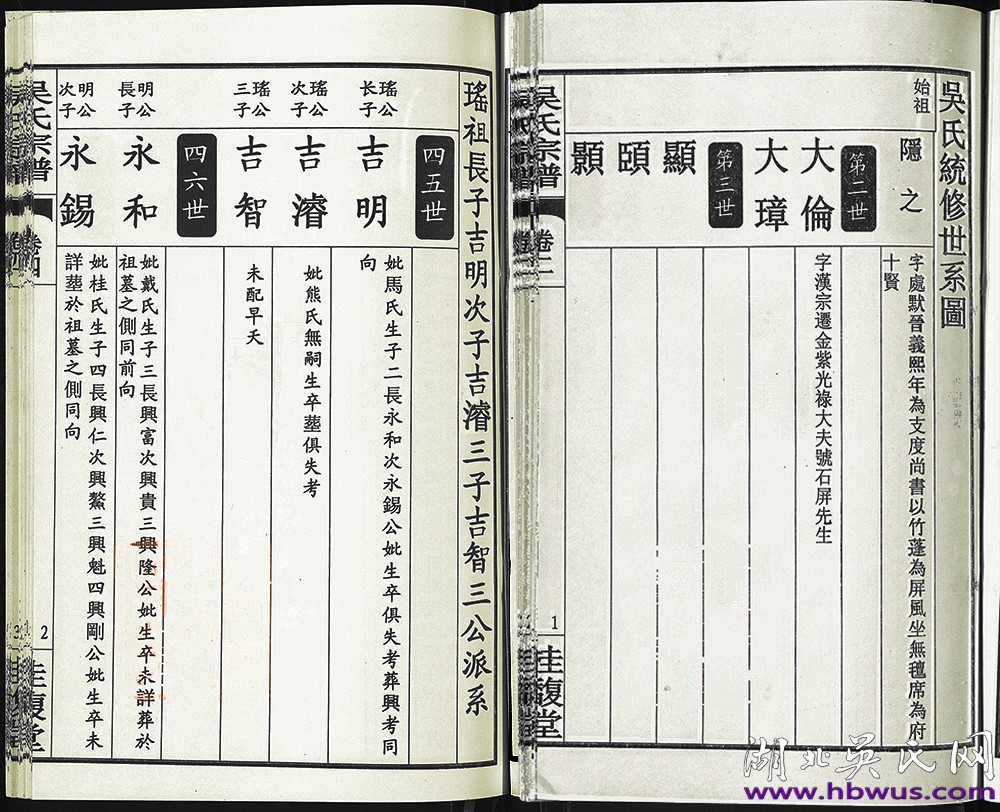 吳氏統修世系圖
始祖
隱之
字處默晉義熙年為支度尚書以竹蓬為屏風坐無氊席為府
十賢
第二世
大倫
字漢宗遷金紫光祿大夫號石屏先生
大璋
第三世
顯
頤
顥
吴氏宗譜
卷二
1
桂馥堂
瑤祖長子吉明次子吉濬三子吉智三公派系
四五世
瑤公
长子
吉明
妣馬氏生子二長永和次永錫公妣生卒俱失考葬興考同
向
瑤公
次子
吉濬
妣熊氏無嗣生卒塟俱失考
瑤公
三子
吉智
未配早夭
四六世
明公
長子
永和
妣戴氏生子三長興富次興貴三興隆公妣生卒未詳葬於
祖墓之側同前向
明公
次子
永錫
妣桂氏生子四長興仁次興鰲三興魁四興剛公妣生卒未
詳塟於祖墓之側同向
吴氏宗譜
卷四
2
桂馥堂
湖北吳氏网
www.hbwus.com